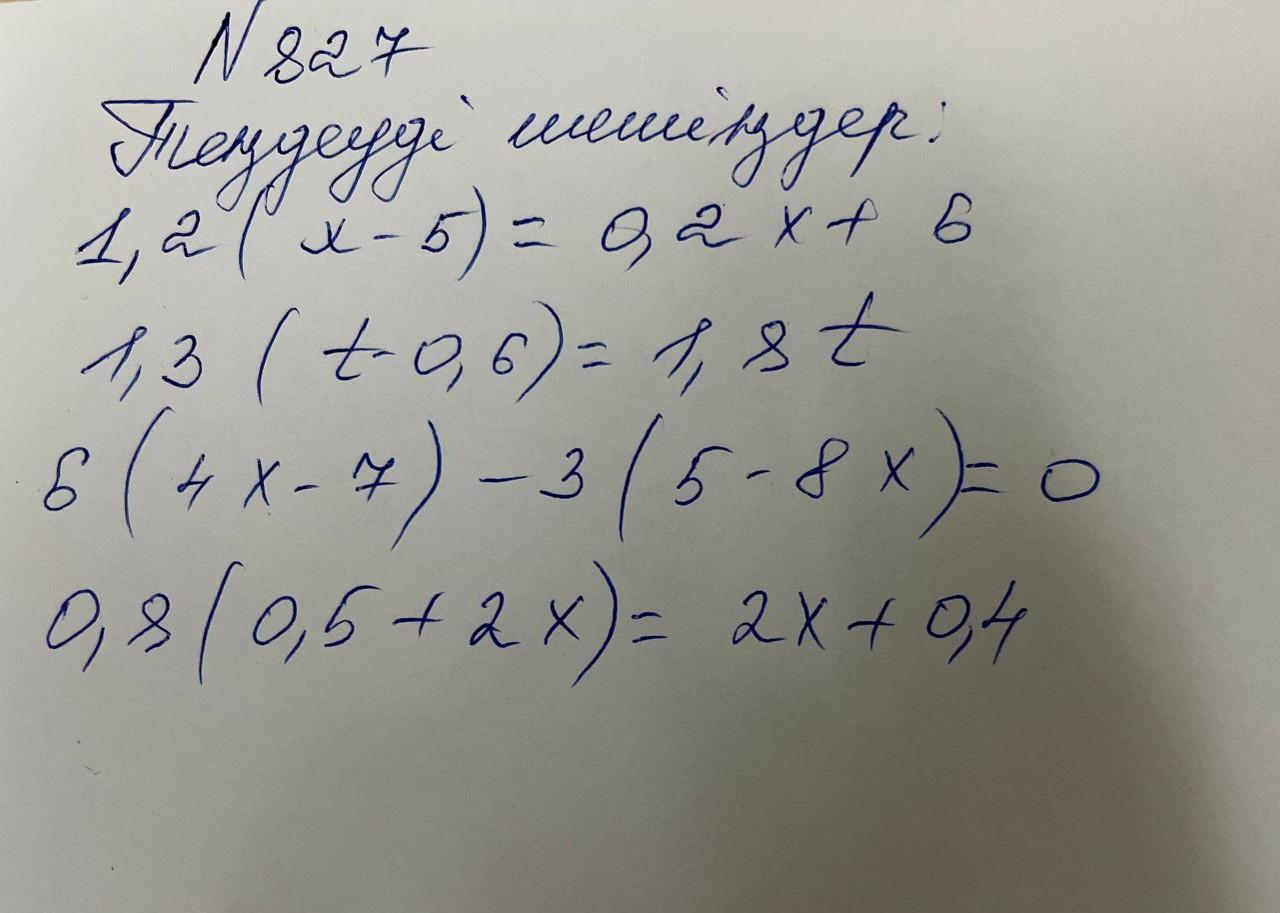 N 827
Теңдеуді шешіңдер:
1,2( x - 5) = 0,2 x + 6
1,3 ( t - 0,6) = 1,8 t
6 ( 4 x - 7 ) - 3 ( 5 - 8 x ) = 0
0,8 ( 0,5 + 2 x ) = 2x + 0,4